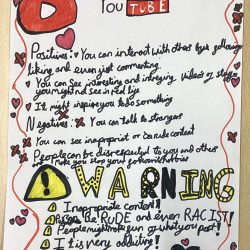 YOU TUBE
Positives: You can interact with others by
liking and even just commenting.
You can see interesting and intreging videos or stories
you might not see in real life
It might inspire you to do something
Negatives: You can talk to strangers
You can see inapropriat or be rude content
People can be disrespectful to you and others
make you stop your
WARNING
Inapropriate content!
the RUDE and even RACIST!
People might make fun of what you post!
It is very addicting!